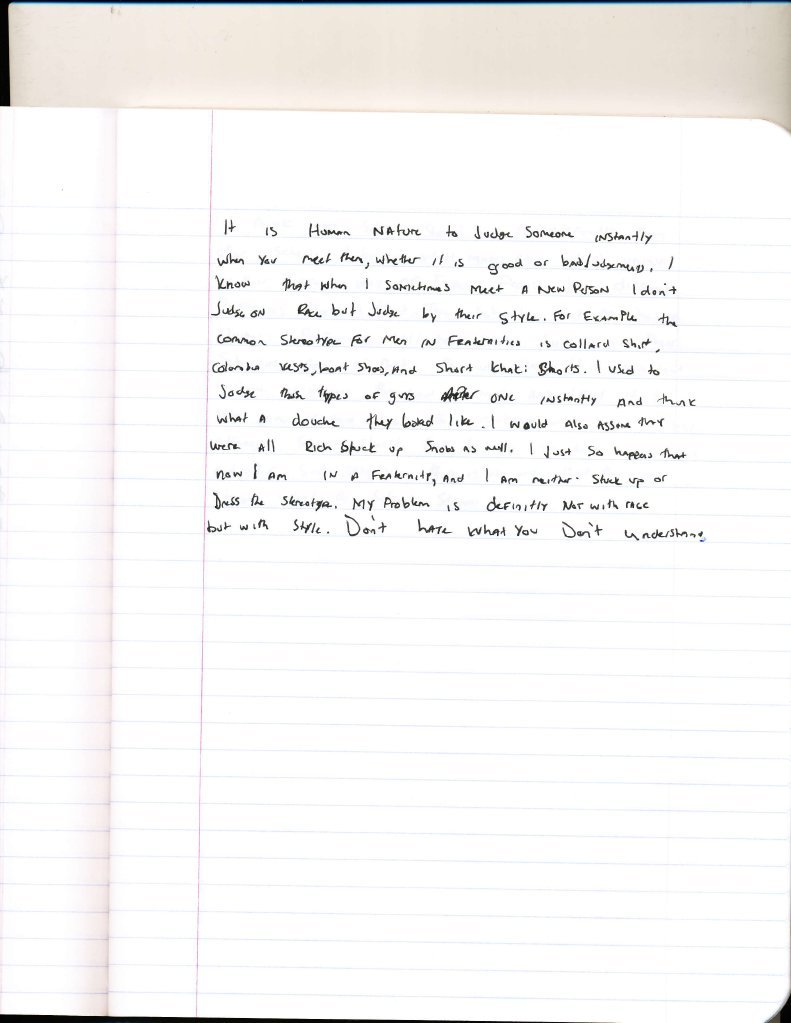 It is Human Nature to Judge Someone instantly
when you meet them, whether it is good or bad judgements. I
know that when I sometimes meet a new person I don't
Judge on Race but Judge by their style. For Example the
common stereotype for men in Fraternities is collard shirt,
Colombia vests, boat shoes, and short khaki shorts. I used to
Judge these types of guys one instantly and think
what a douche they looked like. I would also assume they
were all Rich stuck up snobs as well. I Just so happens that
now I am in a Fraternity, and I am neither stuck up or
Dress the stereotype. My Problem is definitly Not with race
but with style. Don't hate what you Don't understand.